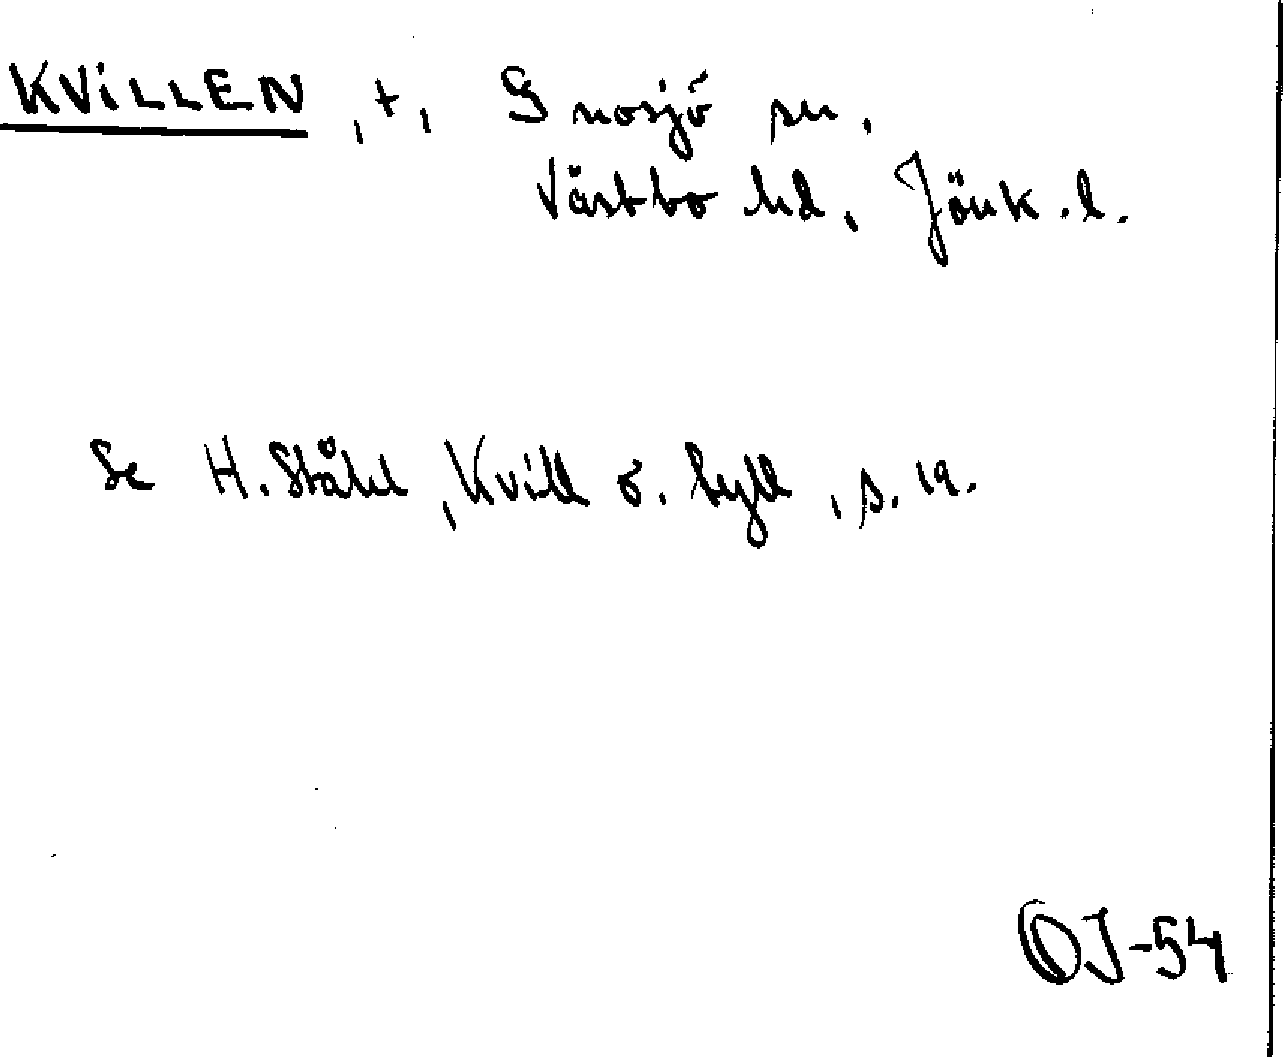 KVILLEN, t, Gnosjö sn,
Västbo hd, Jönk.l.
Se H. Ståhl, Kvill o. hyll, s. 19.
OJ-54